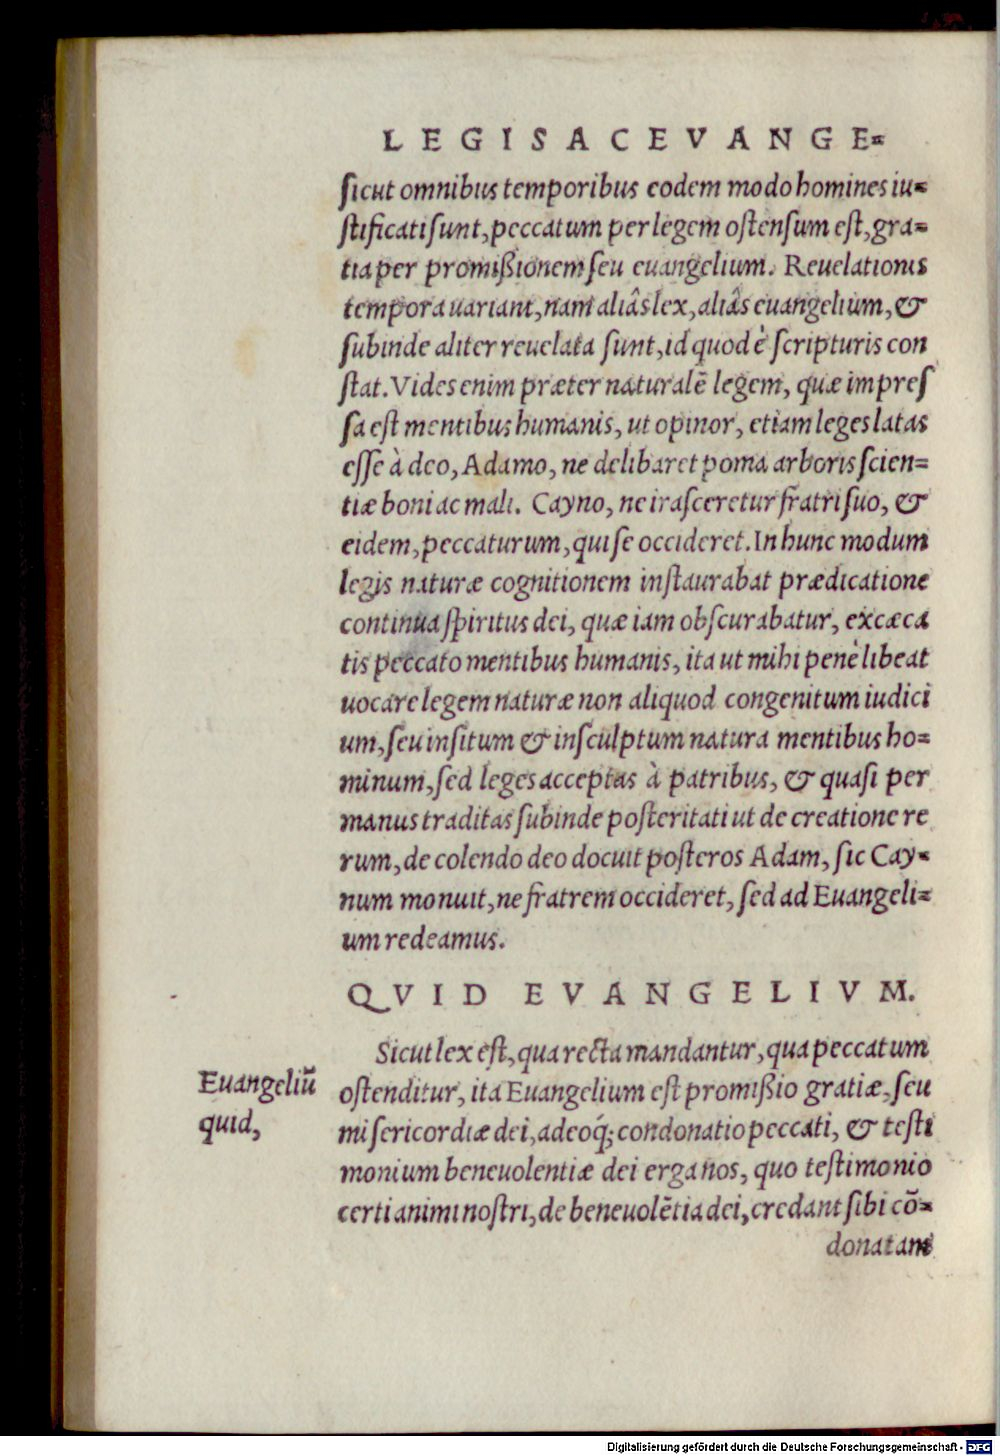 LEGIS AC EVANGE⸗
ſicut omnibus temporibus eodem modo homines iu⸗
ſtificati ſunt, peccatum per legem oſtenſum eſt, gra⸗
tia per promißionem ſeu euangelium. Reuelationis
tempora uariant, nam aliâs lex, aliâs euangelium, &
ſubinde aliter reuelata ſunt, id quod è ſcripturis con
ſtat. Vides enim præter naturalē legem, quæ impreſ
ſa eſt mentibus humanis, ut opinor, etiam leges latas
eſſe à deo, Adamo, ne delibaret poma arboris ſcien⸗
tiæ boni ac mali. Cayno, ne iraſceretur fratri ſuo, &
eidem, peccaturum, qui ſe occideret. In hunc modum
legis naturæ cognitionem inſtaurabat prædicatione
continua ſpiritus dei, quæ iam obſcurabatur, excæca
tis peccato mentibus humanis, ita ut mihi penè libeat
uocare legem naturæ non aliquod congenitum iudici
um, ſeu inſitum & inſculptum natura mentibus ho⸗
minum, ſed leges acceptas à patribus, & quaſi per
manus traditas ſubinde poſteritati ut de creatione re
rum, de colendo deo docuit poſteros Adam, ſic Cay⸗
num monuit, ne fratrem occideret, ſed ad Euangeli⸗
um redeamus.
QVID EVANGELIVM.
Sicut lex eſt, qua recta mandantur, qua peccatum
Euangeliū
quid,
oſtenditur, ita Euangelium eſt promißio gratiæ, ſeu
miſericordiæ dei, adeoq́; condonatio peccati, & teſti
monium beneuolentiæ dei erga nos, quo teſtimonio
certi animi noſtri, de beneuolētia dei, credant ſibi cō⸗
donatam
Digitalisierung gefördert durch die Deutsche Forschungsgemeinschaft - DFG